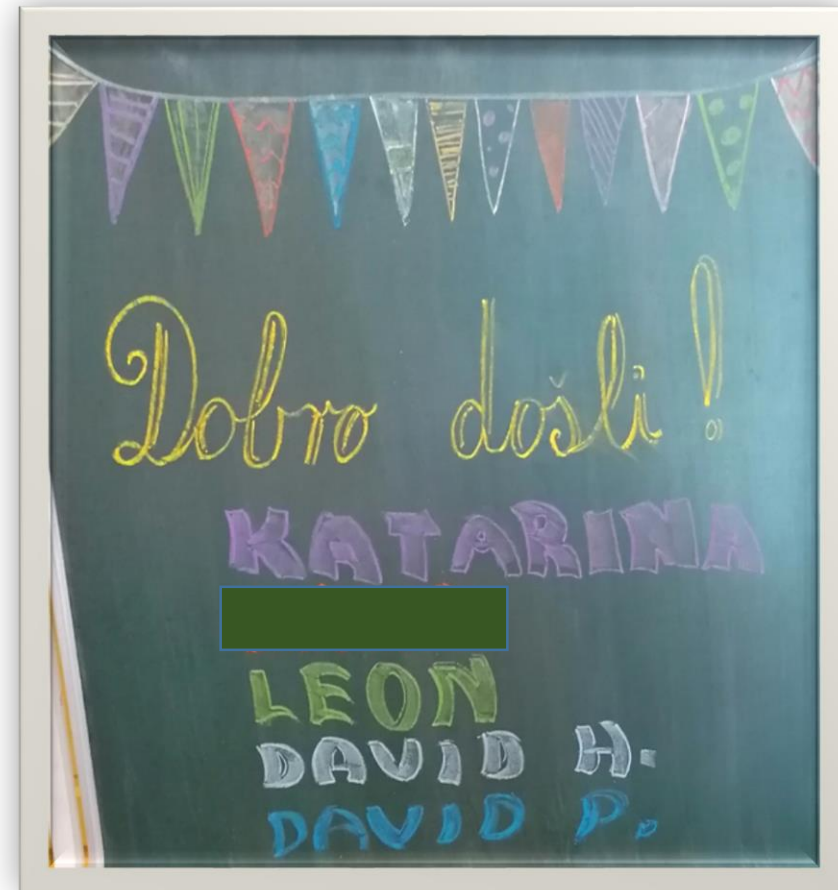 Dobro došli!
KATARINA
LEON
DAVID H.
DAVID P.